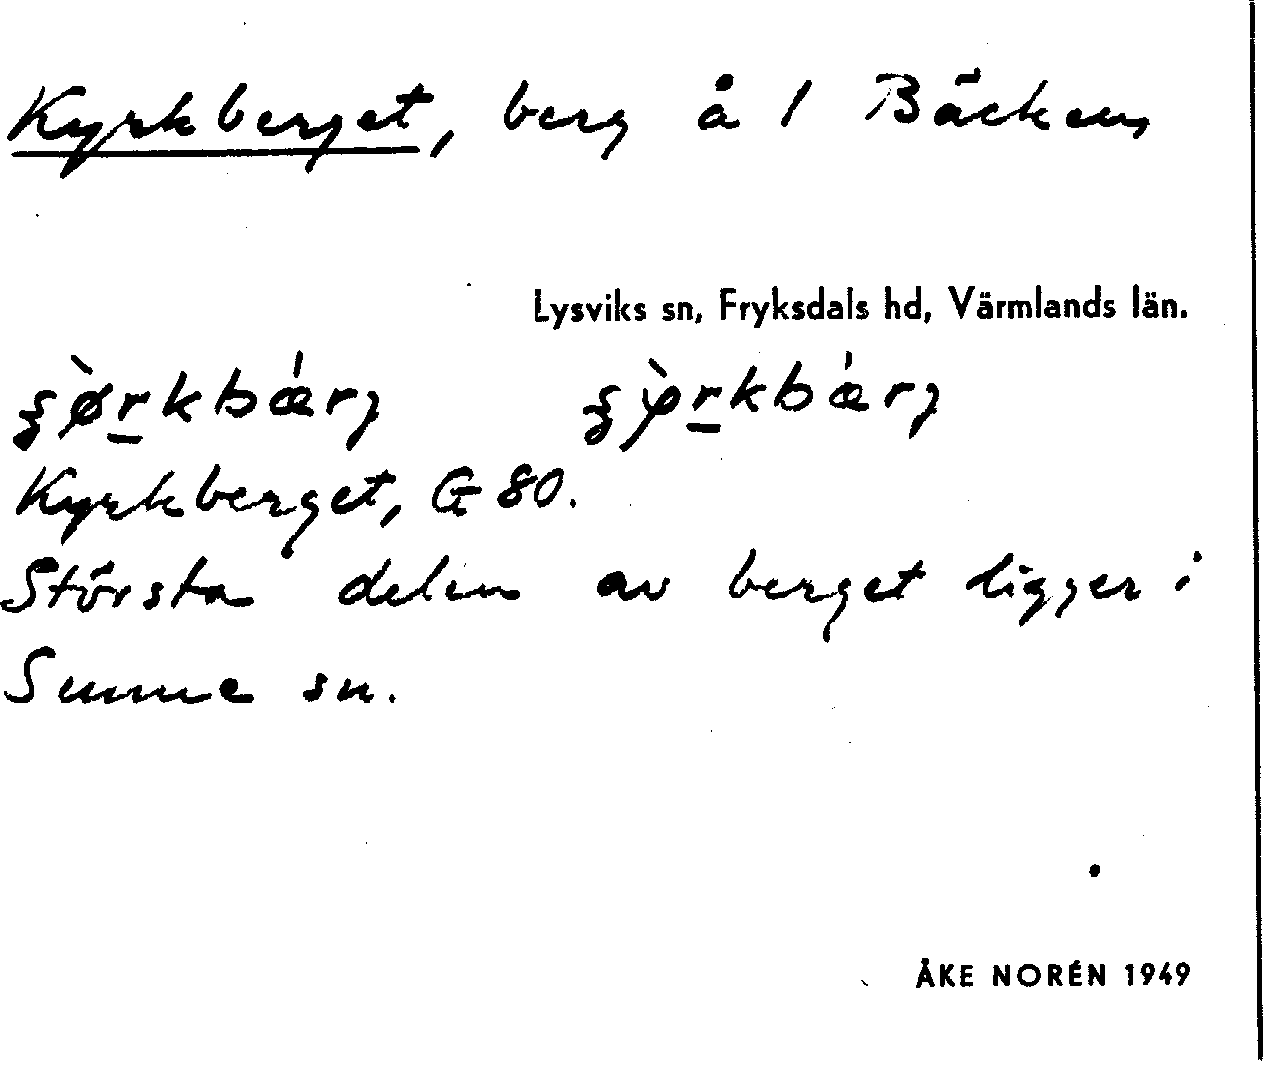 Kyrkberget, berg å 1 Bäcken
Lysviks sn, Fryksdals hd, Värmlands län.
Kyrkberget, G 80.
Största delen av berget ligger i
Sunne sn.
ÅKE NORÉN 1949